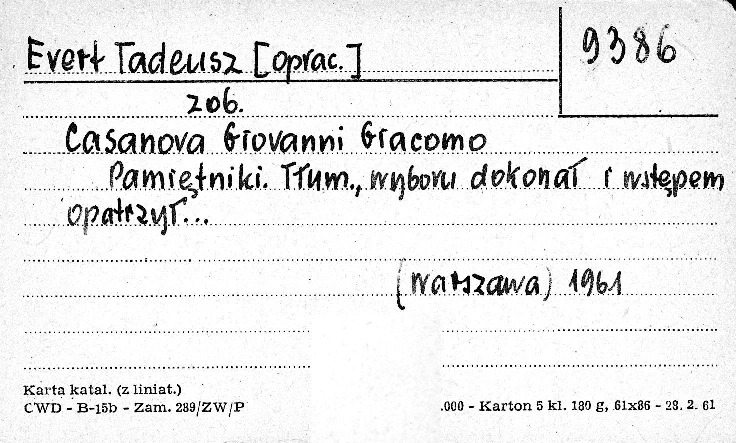 Evert Tadeusz [oprac.]
9386
zob.
Casanova Giovanni Giacomo
Pamiętniki. Tłum., wyboru dokonał i wstępem
opatrzył...
(Warszawa) 1961
Karta katal. (z liniat.)
CWD - B-15b - Zam. 289/ZW/P
.000 - Karton 5 kl. 180 g, 61x86 - 28. 2. 61